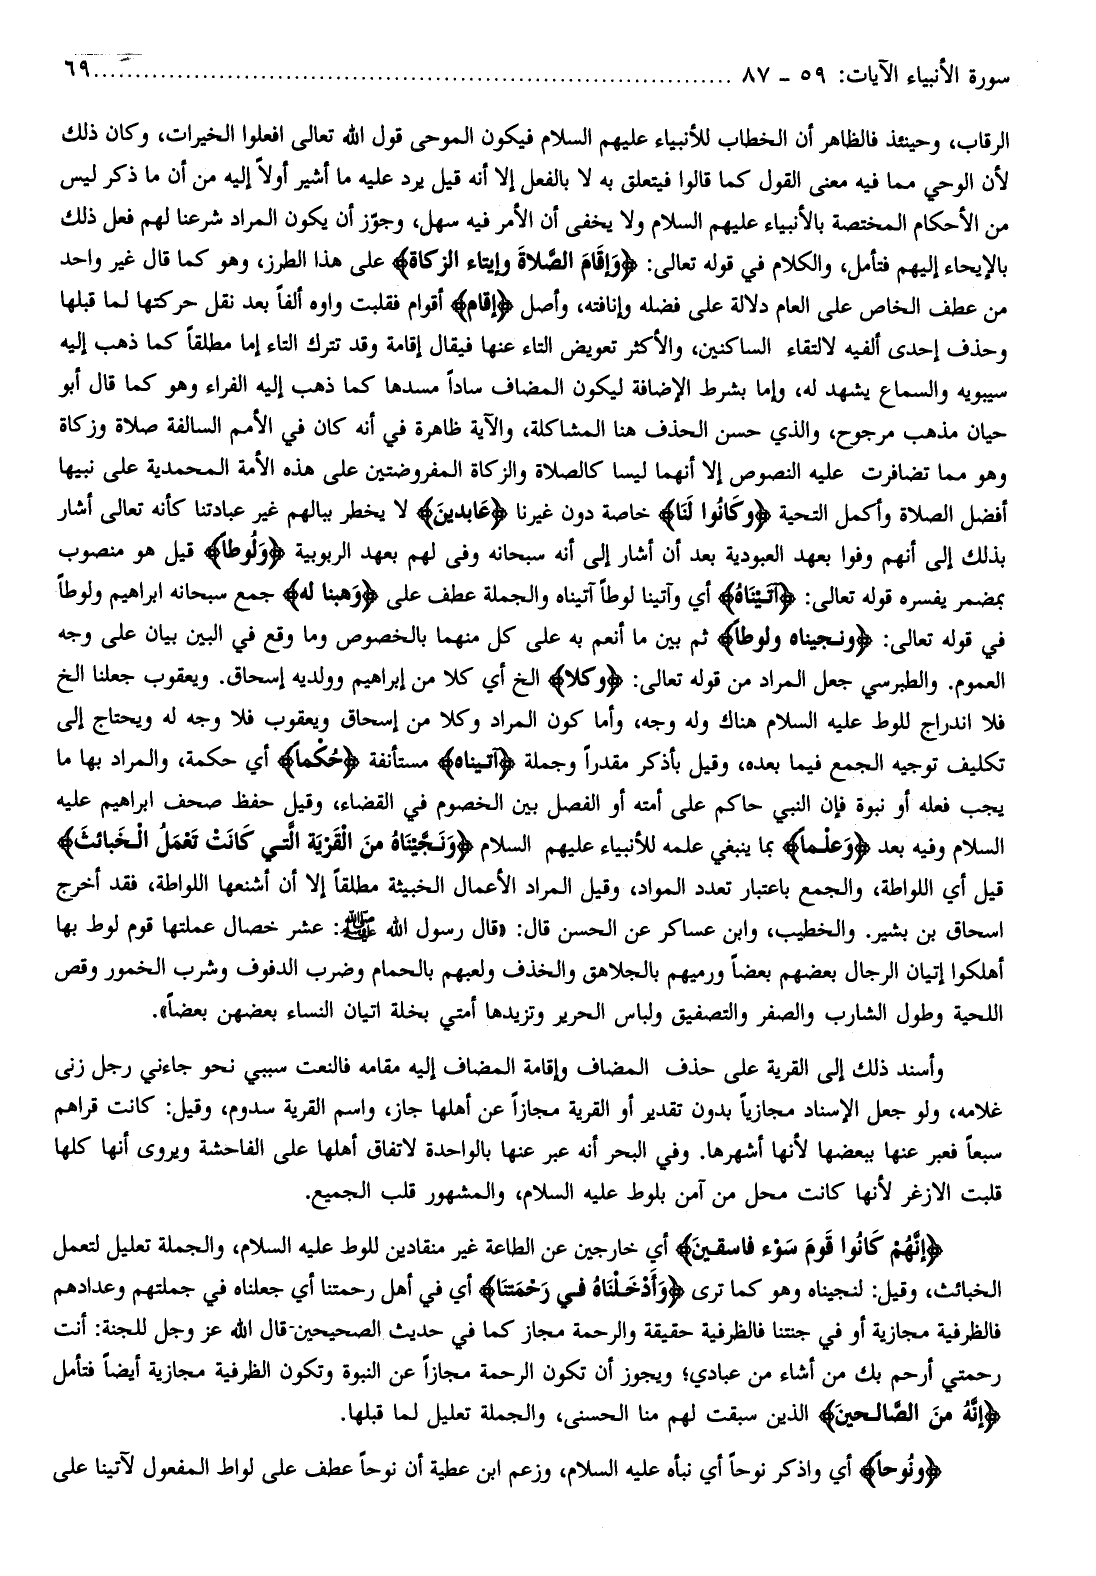 سورة الأنبياء الآيات: ٥٩ - ٨٧ ........................................................................ ٦٩
الرقاب، وحينئذ فالظاهر أن الخطاب للأنبياء عليهم السلام فيكون الموحى قول الله تعالى افعلوا الخيرات، وكان ذلك
لأن الوحي مما فيه معنى القول كما قالوا فيتعلق به لا بالفعل إلا أنه قيل يرد عليه ما أشير أولاً إليه من أن ما ذكر ليس
من الأحكام المختصة بالأنبياء عليهم السلام ولا يخفى أن الأمر فيه سهل، وجوّز أن يكون المراد شرعنا لهم فعل ذلك
بالإيحاء إليهم فتأمل، والكلام في قوله تعالى: ﴿وَإقَامَ الصَّلاةَ وإيتاء الزكاة﴾ على هذا الطرز، وهو كما قال غير واحد
من عطف الخاص على العام دلالة على فضله وإنافته، وأصل ﴿إقام﴾ أقوام فقلبت واوه ألفاً بعد نقل حركتها لما قبلها
وحذف إحدى ألفيه لالتقاء الساكنين، والأكثر تعويض التاء عنها فيقال إقامة وقد تترك التاء إما مطلقاً كما ذهب إليه
سيبويه والسماع يشهد له، وإما بشرط الإضافة ليكون المضاف ساداً مسدها كما ذهب إليه الفراء وهو كما قال أبو
حيان مذهب مرجوح، والذي حسن الحذف هنا المشاكلة، والآية ظاهرة في أنه كان في الأمم السالفة صلاة وزكاة
وهو مما تضافرت عليه النصوص إلا أنهما ليسا كالصلاة والزكاة المفروضتين على هذه الأمة المحمدية على نبيها
أفضل الصلاة وأكمل التحية ﴿وكَانُوا لَنَا﴾ خاصة دون غيرنا ﴿عَابدينَ﴾ لا يخطر ببالهم غير عبادتنا كأنه تعالى أشار
بذلك إلى أنهم وفوا بعهد العبودية بعد أن أشار إلى أنه سبحانه وفى لهم بعهد الربوبية ﴿وَلُوطاً﴾ قيل هو منصوب
بمضمر يفسره قوله تعالى: ﴿آتَيْنَاهُ﴾ أي وآتينا لوطاً آتيناه والجملة عطف على ﴿وَهبنا له﴾ جمع سبحانه ابراهيم ولوطاً
في قوله تعالى: ﴿ونجيناه ولوطاً﴾ ثم بين ما أنعم به على كل منهما بالخصوص وما وقع في البين بيان على وجه
العموم. والطبرسي جعل المراد من قوله تعالى: ﴿وكلا﴾ الخ أي كلا من إبراهيم وولديه إسحاق. ويعقوب جعلنا الخ
فلا اندراج للوط عليه السلام هناك وله وجه، وأما كون المراد وكلا من إسحاق ويعقوب فلا وجه له ويحتاج إلى
تكليف توجيه الجمع فيما بعده، وقيل بأذكر مقدراً وجملة ﴿آتيناه﴾ مستأنفة ﴿حُكْماً﴾ أي حكمة، والمراد بها ما
يجب فعله أو نبوة فإن النبي حاكم على أمته أو الفصل بين الخصوم في القضاء، وقيل حفظ صحف ابراهيم عليه
السلام وفيه بعد ﴿وَعلْماً﴾ بما ينبغي علمه للأنبياء عليهم السلام ﴿وَنَجَّيْنَاهُ منَ الْقَرْيَة الَّتي كَانَتْ تَعْمَلُ الْخَبائثَ﴾
قيل أي اللواطة، والجمع باعتبار تعدد المواد، وقيل المراد الأعمال الخبيثة مطلقاً إلا أن أشنعها اللواطة، فقد أخرج
اسحاق بن بشير. والخطيب، وابن عساكر عن الحسن قال: «قال رسول الله ﷺ: عشر خصال عملتها قوم لوط بها
أهلكوا إتيان الرجال بعضهم بعضاً ورميهم بالجلاهق والخذف ولعبهم بالحمام وضرب الدفوف وشرب الخمور وقص
اللحية وطول الشارب والصفر والتصفيق ولباس الحرير وتزيدها أمتي بخلة اتيان النساء بعضهن بعضاً».
وأسند ذلك إلى القرية على حذف المضاف وإقامة المضاف إليه مقامه فالنعت سببي نحو جاءني رجل زنى
غلامه، ولو جعل الإسناد مجازياً بدون تقدير أو القرية مجازاً عن أهلها جاز، واسم القرية سدوم، وقيل: كانت قراهم
سبعاً فعبر عنها ببعضها لأنها أشهرها. وفي البحر أنه عبر عنها بالواحدة لاتفاق أهلها على الفاحشة ويروى أنها كلها
قلبت الازغر لأنها كانت محل من آمن بلوط عليه السلام، والمشهور قلب الجميع.
﴿إنَّهُمْ كَانُوا قَومَ سَوْء فاسقينَ﴾ أي خارجين عن الطاعة غير منقادين للوط عليه السلام، والجملة تعليل لتعمل
الخبائث، وقيل: لنجيناه وهو كما ترى ﴿وَأَدْخَلْنَاهُ في رَحْمَتنَا﴾ أي في أهل رحمتنا أي جعلناه في جملتهم وعدادهم
فالظرفية مجازية أو في جنتنا فالظرفية حقيقة والرحمة مجاز كما في حديث الصحيحين-قال الله عز وجل للجنة: أنت
رحمتي أرحم بك من أشاء من عبادي؛ ويجوز أن تكون الرحمة مجازاً عن النبوة وتكون الظرفية مجازية أيضاً فتأمل
﴿إنَّهُ منَ الصَّالحينَ﴾ الذين سبقت لهم منا الحسنى، والجملة تعليل لما قبلها.
﴿ونُوحاً﴾ أي واذكر نوحاً أي نبأه عليه السلام، وزعم ابن عطية أن نوحاً عطف على لواط المفعول لآتينا على